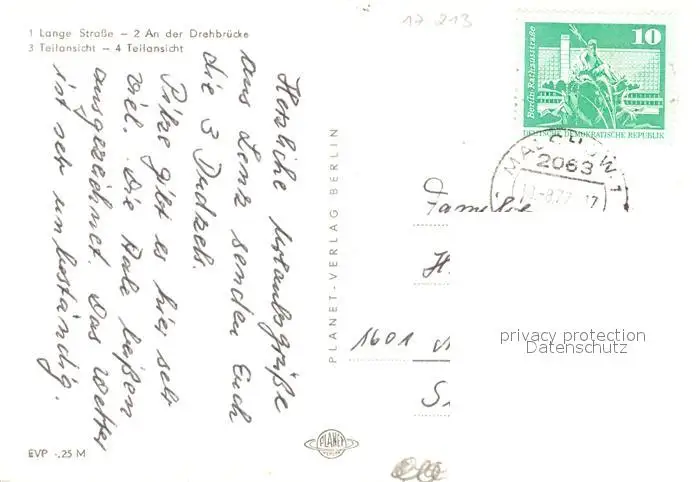 1 Lange Straße – 2 An der Drehbrücke
3 Teilansicht – 4 Teilansicht
Herzliche Urlaubsgrüße
aus Lenz senden Euch
die 3 Dudzels.
Pilze gibt es hier sehr
viel. Die Aale beißen
ausgezeichnet. Das Wetter
ist sehr unbeständig.
EVP -.25 M
PLANET-VERLAG BERLIN
PLANET
VERLAG
17 213
Berlin, Rathausstraße
10
DEUTSCHE DEMOKRATISCHE REPUBLIK
MALCHOW 1
2063
Familie
H.
1601
privacy protection
Datenschutz